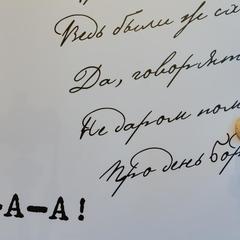 Ведь были ж сх
Да, говорят
Недаром пом
Про день Бор
-А-А!